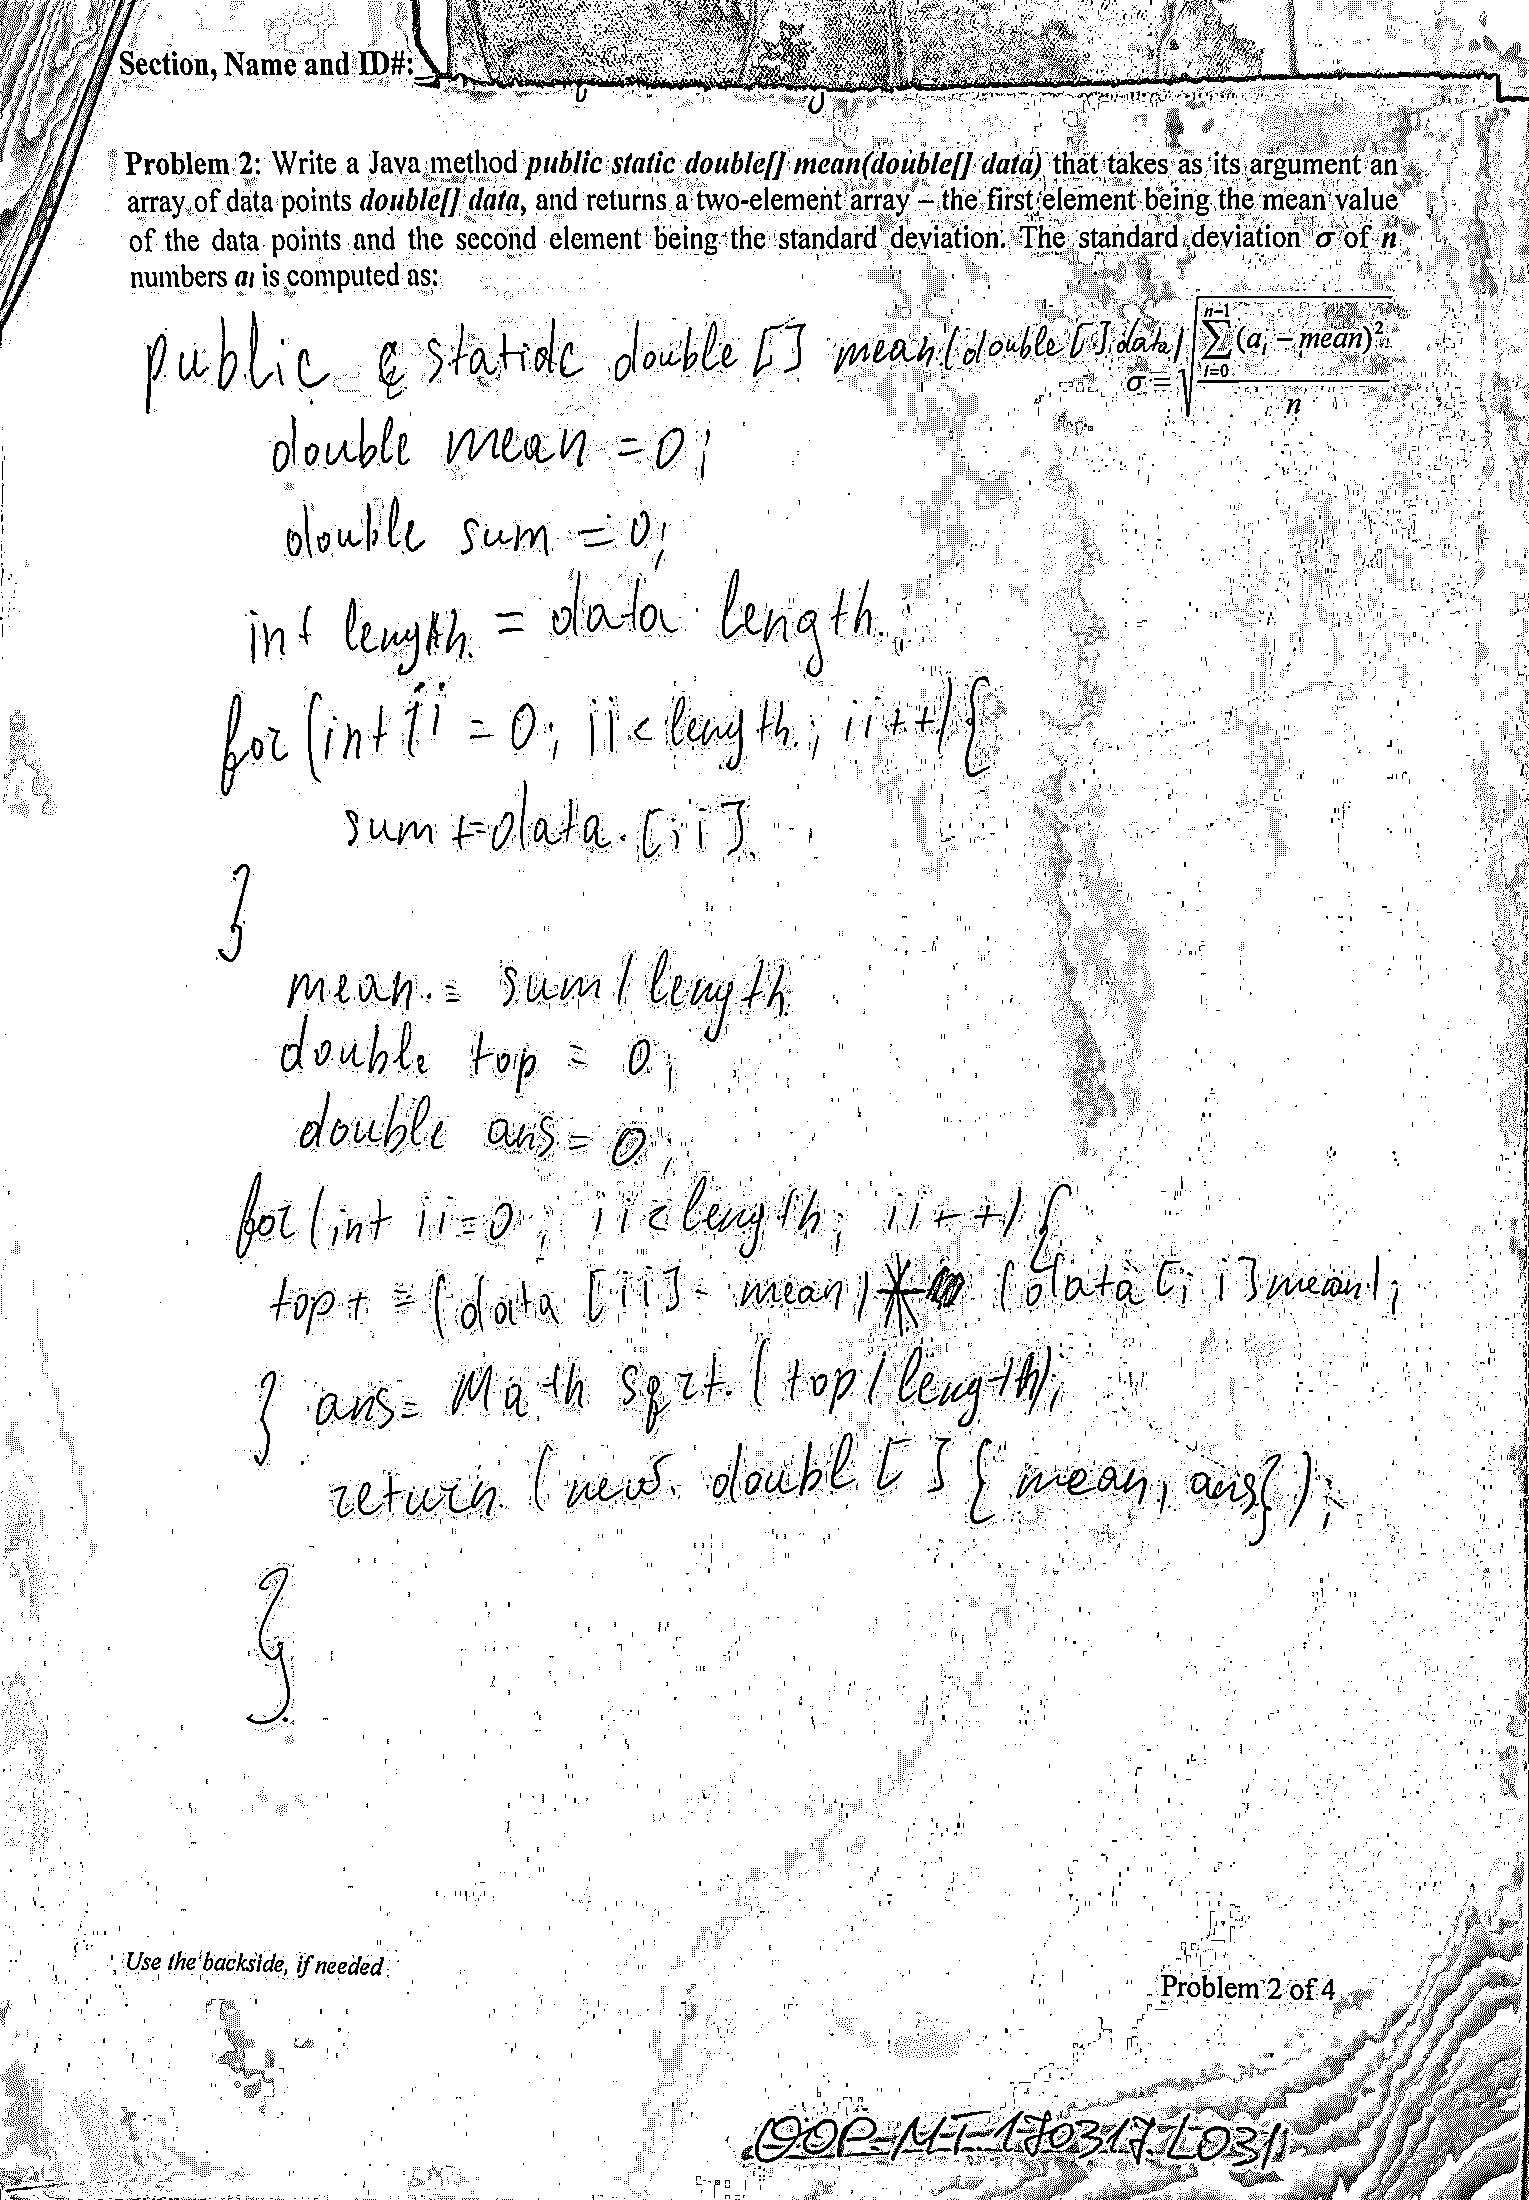 Section, Name and ID#:
Problem 2: Write a Java method public static double[] mean(double[] data) that takes as its argument an
array of data points double[] data, and returns a two-element array – the first element being the mean value
of the data points and the second element being the standard deviation. The standard deviation σ of n
numbers ai is computed as:
σ = √(∑_{i=0}^{n-1} (a_i – mean)² / n)
public statidc double [] mean(double[] data)
double mean = 0;
double sum = 0;
int length = data length.;
for (int ii = 0; ii < length; ii++) {
sum += data. [ii]
}
mean = sum / length
double top = 0;
double ans = 0;
for (int ii=0; ii < length; ii++) {
top + = (data [ii] - mean) * (data [ii] mean);
} ans = Math sqrt. (top / length);
return (new double [] { mean, ans});
}
Use the backside, if needed
Problem 2 of 4
OOP-MT-170317-L031